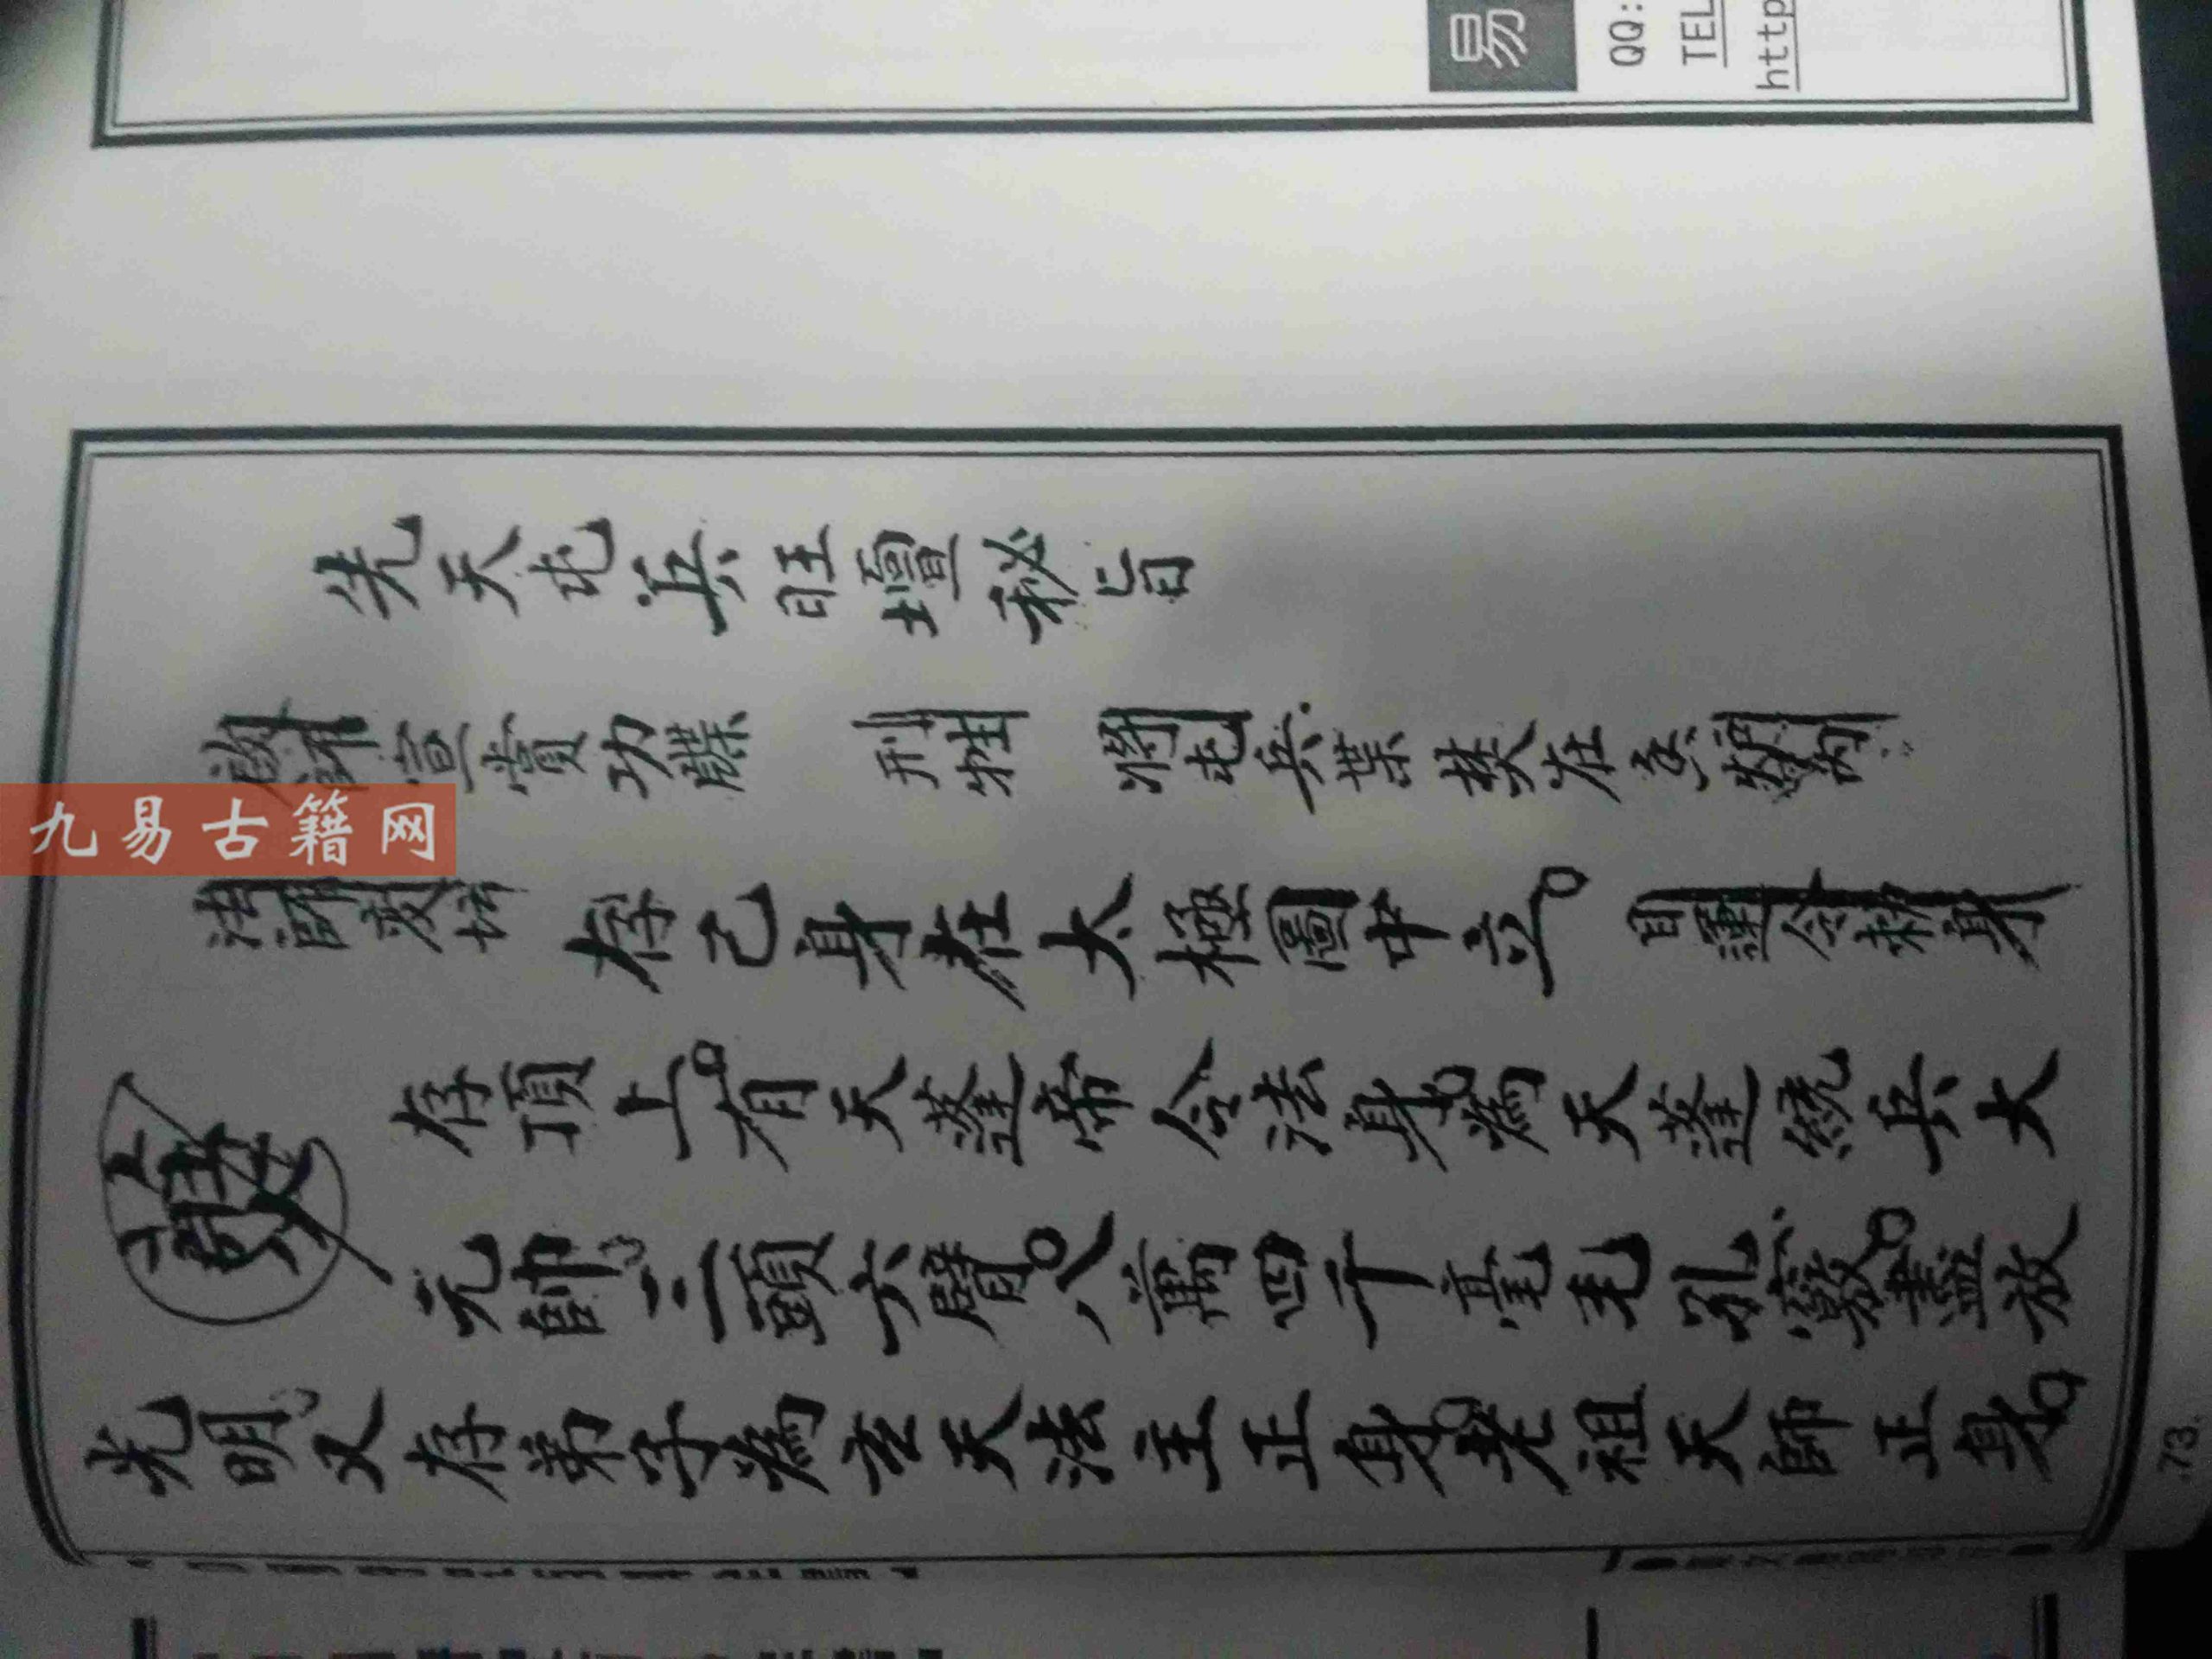 易
QQ:
TEL
http
先天屯兵旺壇秘旨
宣賞功牒 刑牲 將屯兵葉焚在
九易古籍网
存己身在太極圖中立
存頂上有天蓬帝令法身為天蓬統兵大
元帥三頭六臂八萬四千毫毛孔竅盡放
光明又存弟子為玄天法主正身老祖天師正身
.73.